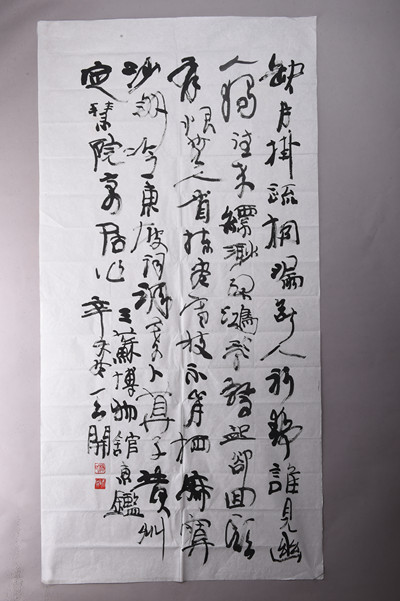 缺月掛疏桐漏斷人初靜誰見幽
人獨往來縹緲孤鴻影驚起卻回頭
有恨無人省揀盡寒枝不肯栖寂寞
沙洲冷東坡詞調寄卜算子黃州
定慧院寓居作
三蘇博物館惠鑑
辛未冬開